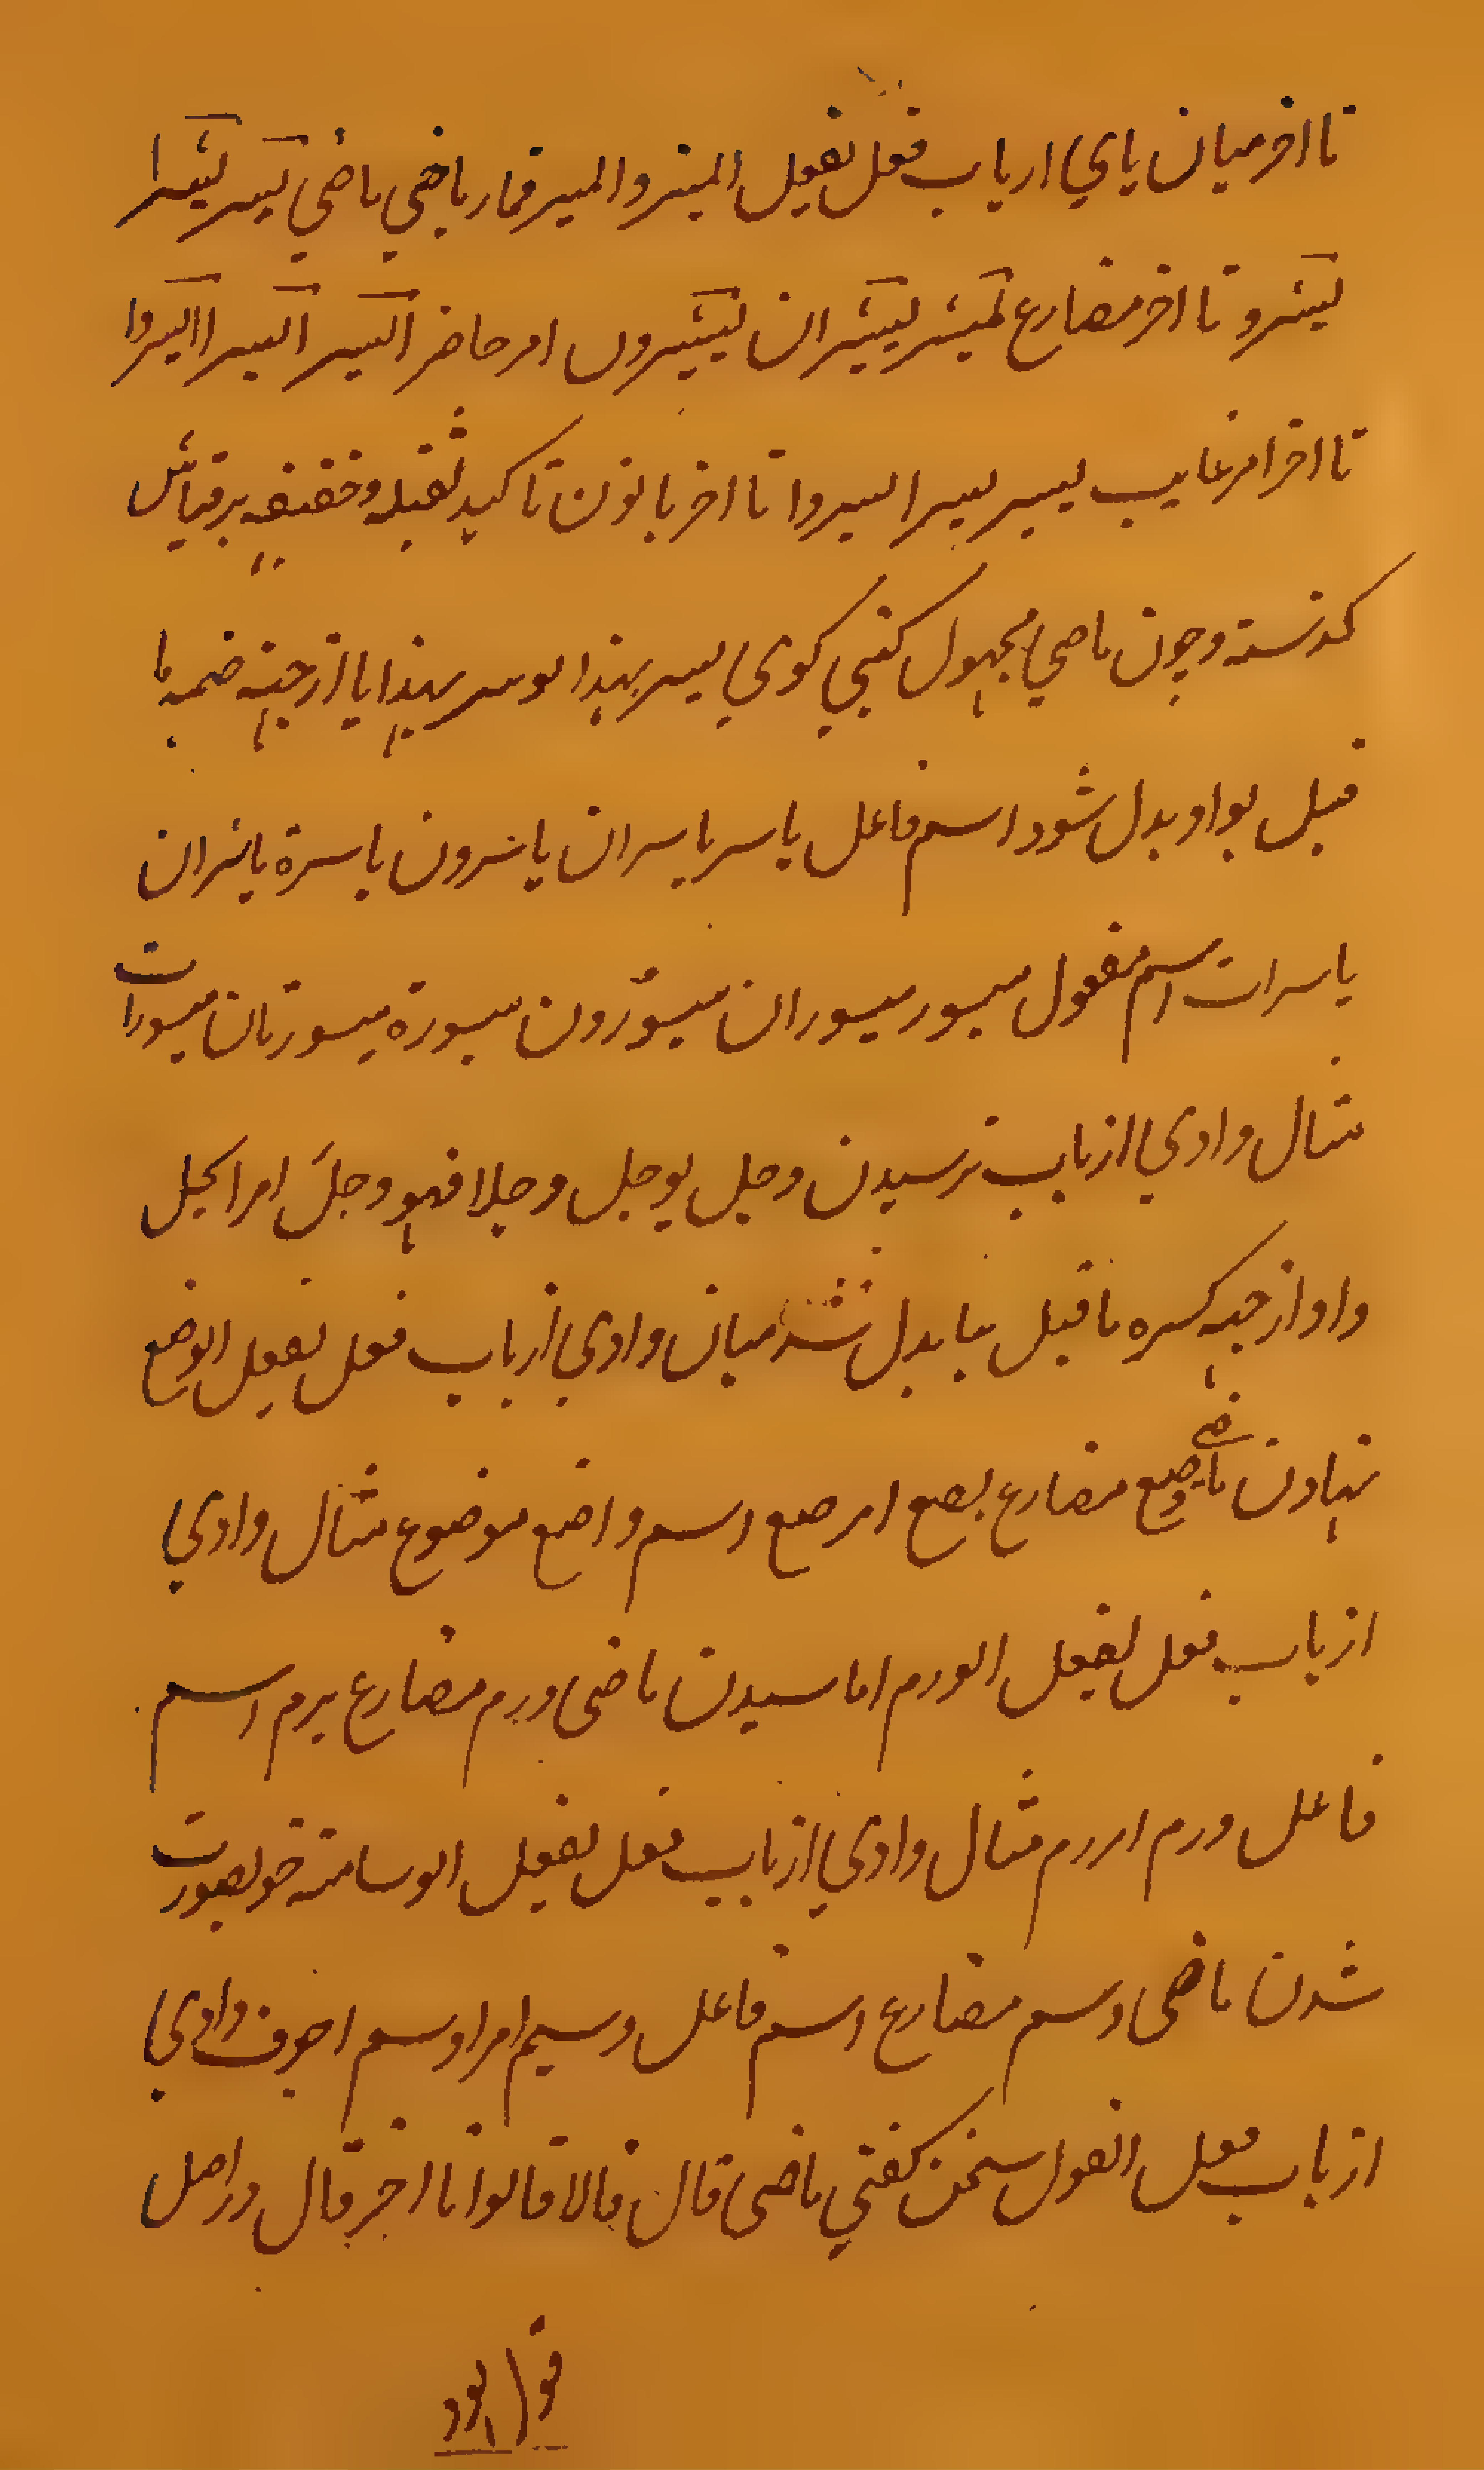 تا اخر میان یاي از باب فعل یفعل المیسر والمیسر قمار باختن ماضي یسر یسرا
یسرو تا اخر مضارع ییسر ییسران ییسرون امر حاضر ایسر ایسرا ایسروا
تا اخر امر غایب لییسر لییسرا لییسروا تا اخر با نون تاکید ثقیله وخفیفه بر قیاس
کذشته وچون ماضي مجهول کني کوي یسر بهذا یوسر بهذا یا از جهته ضمه ما
قبل بواو بدل شود اسم فاعل یاسر یاسران یاسرون یاسرة یاسران
یاسرات اسم مفعول میسور میسوران میسورون میسورة میسورتان میسورات
مثال وادي از باب ترسیدن وجل یوجل وجلا فهو وجل امر ایجل
واو از جهه کسره ما قبل بیا بدل شد میان وادي از باب فعل یفعل الوضع
نهادن ماضی وضع مضارع یضع امر ضع اسم واضع موضوع مثال وادي
از باب فعل یفعل الورم اماسیدن ماضی ورم مضارع یرم اسم
فاعل ورم امر رم مثال وادي از باب فعل یفعل الوسامته خوبصورت
شدن ماضی وسم مضارع اسم فاعل وسیم امر اوسم اجوف وادي
از باب فعل القول سخن کفتي ماضی قال قالا قالوا تا اخر قال در اصل
قول بود